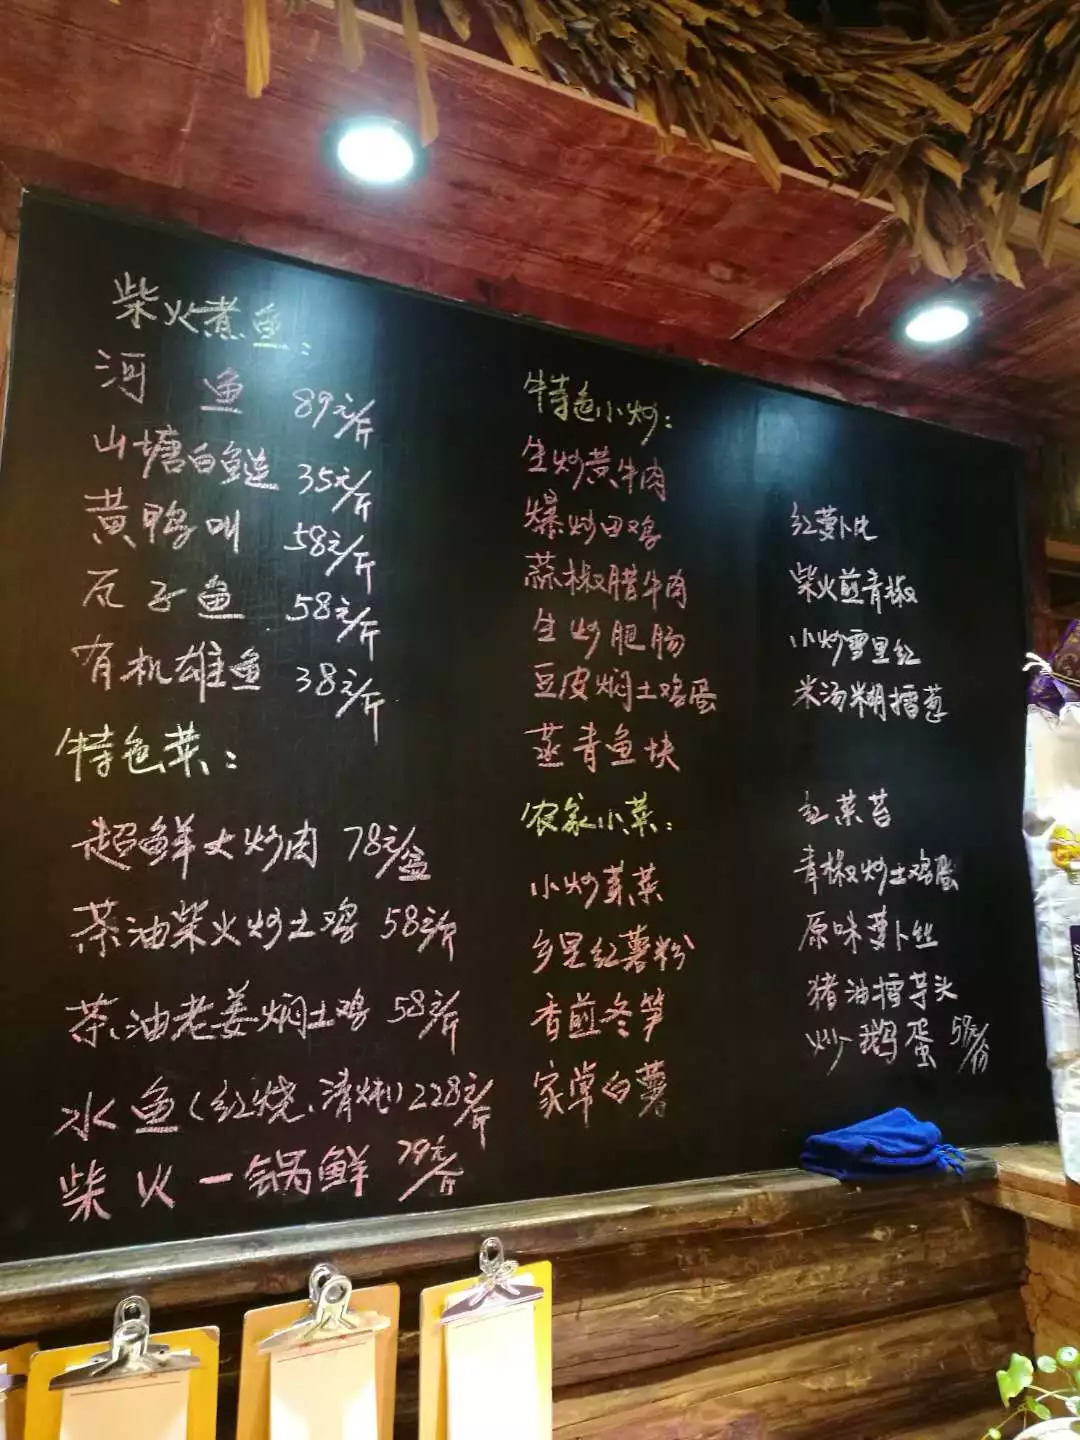 柴火煮鱼：
河鱼 89元/斤
山塘白鲢 35元/斤
黄鸭叫 58元/斤
瓦子鱼 58元/斤
有机雄鱼 38元/斤
特色菜：
超鲜大炒肉 78元/盆
茶油柴火炒土鸡 58元/斤
茶油老姜焖土鸡 58元/斤
水鱼(红烧、清炖) 228元/斤
柴火一锅鲜 79元/斤
特色小炒：
生炒黄牛肉
爆炒田鸡
蒜椒腊牛肉
生炒肥肠
豆皮焖土鸡蛋
蒸青鱼块
农家小菜：
小炒芽菜
乡里红薯粉
香煎冬笋
家常白薯
红萝卜片
柴火煎青椒
小炒雪里红
米汤糊擂葱
红菜苔
青椒炒土鸡蛋
原味萝卜丝
猪油擂芋头
炒鹅蛋 58元/份